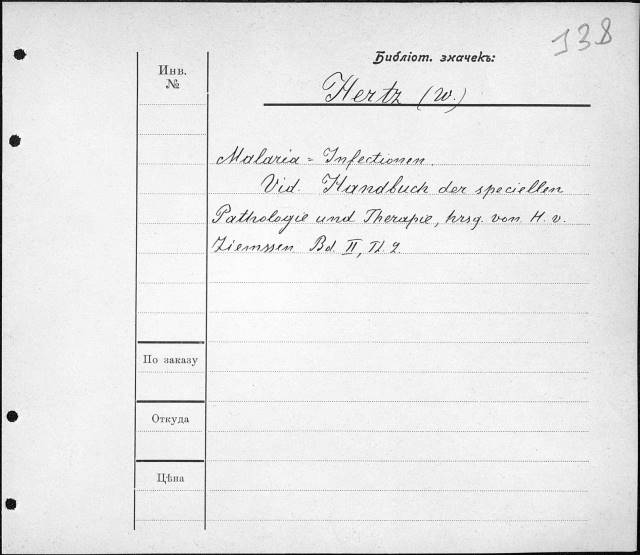 138
Библіот. значекъ:
Инв.
№
Hertz (W.)
Malaria = Infectionen.
Vid. Handbuch der speciellen
Pathologie und Therapie, hrsg. von H. v.
Ziemssen Bd. II, Tl. 2.
По заказу
Откуда
Цѣна